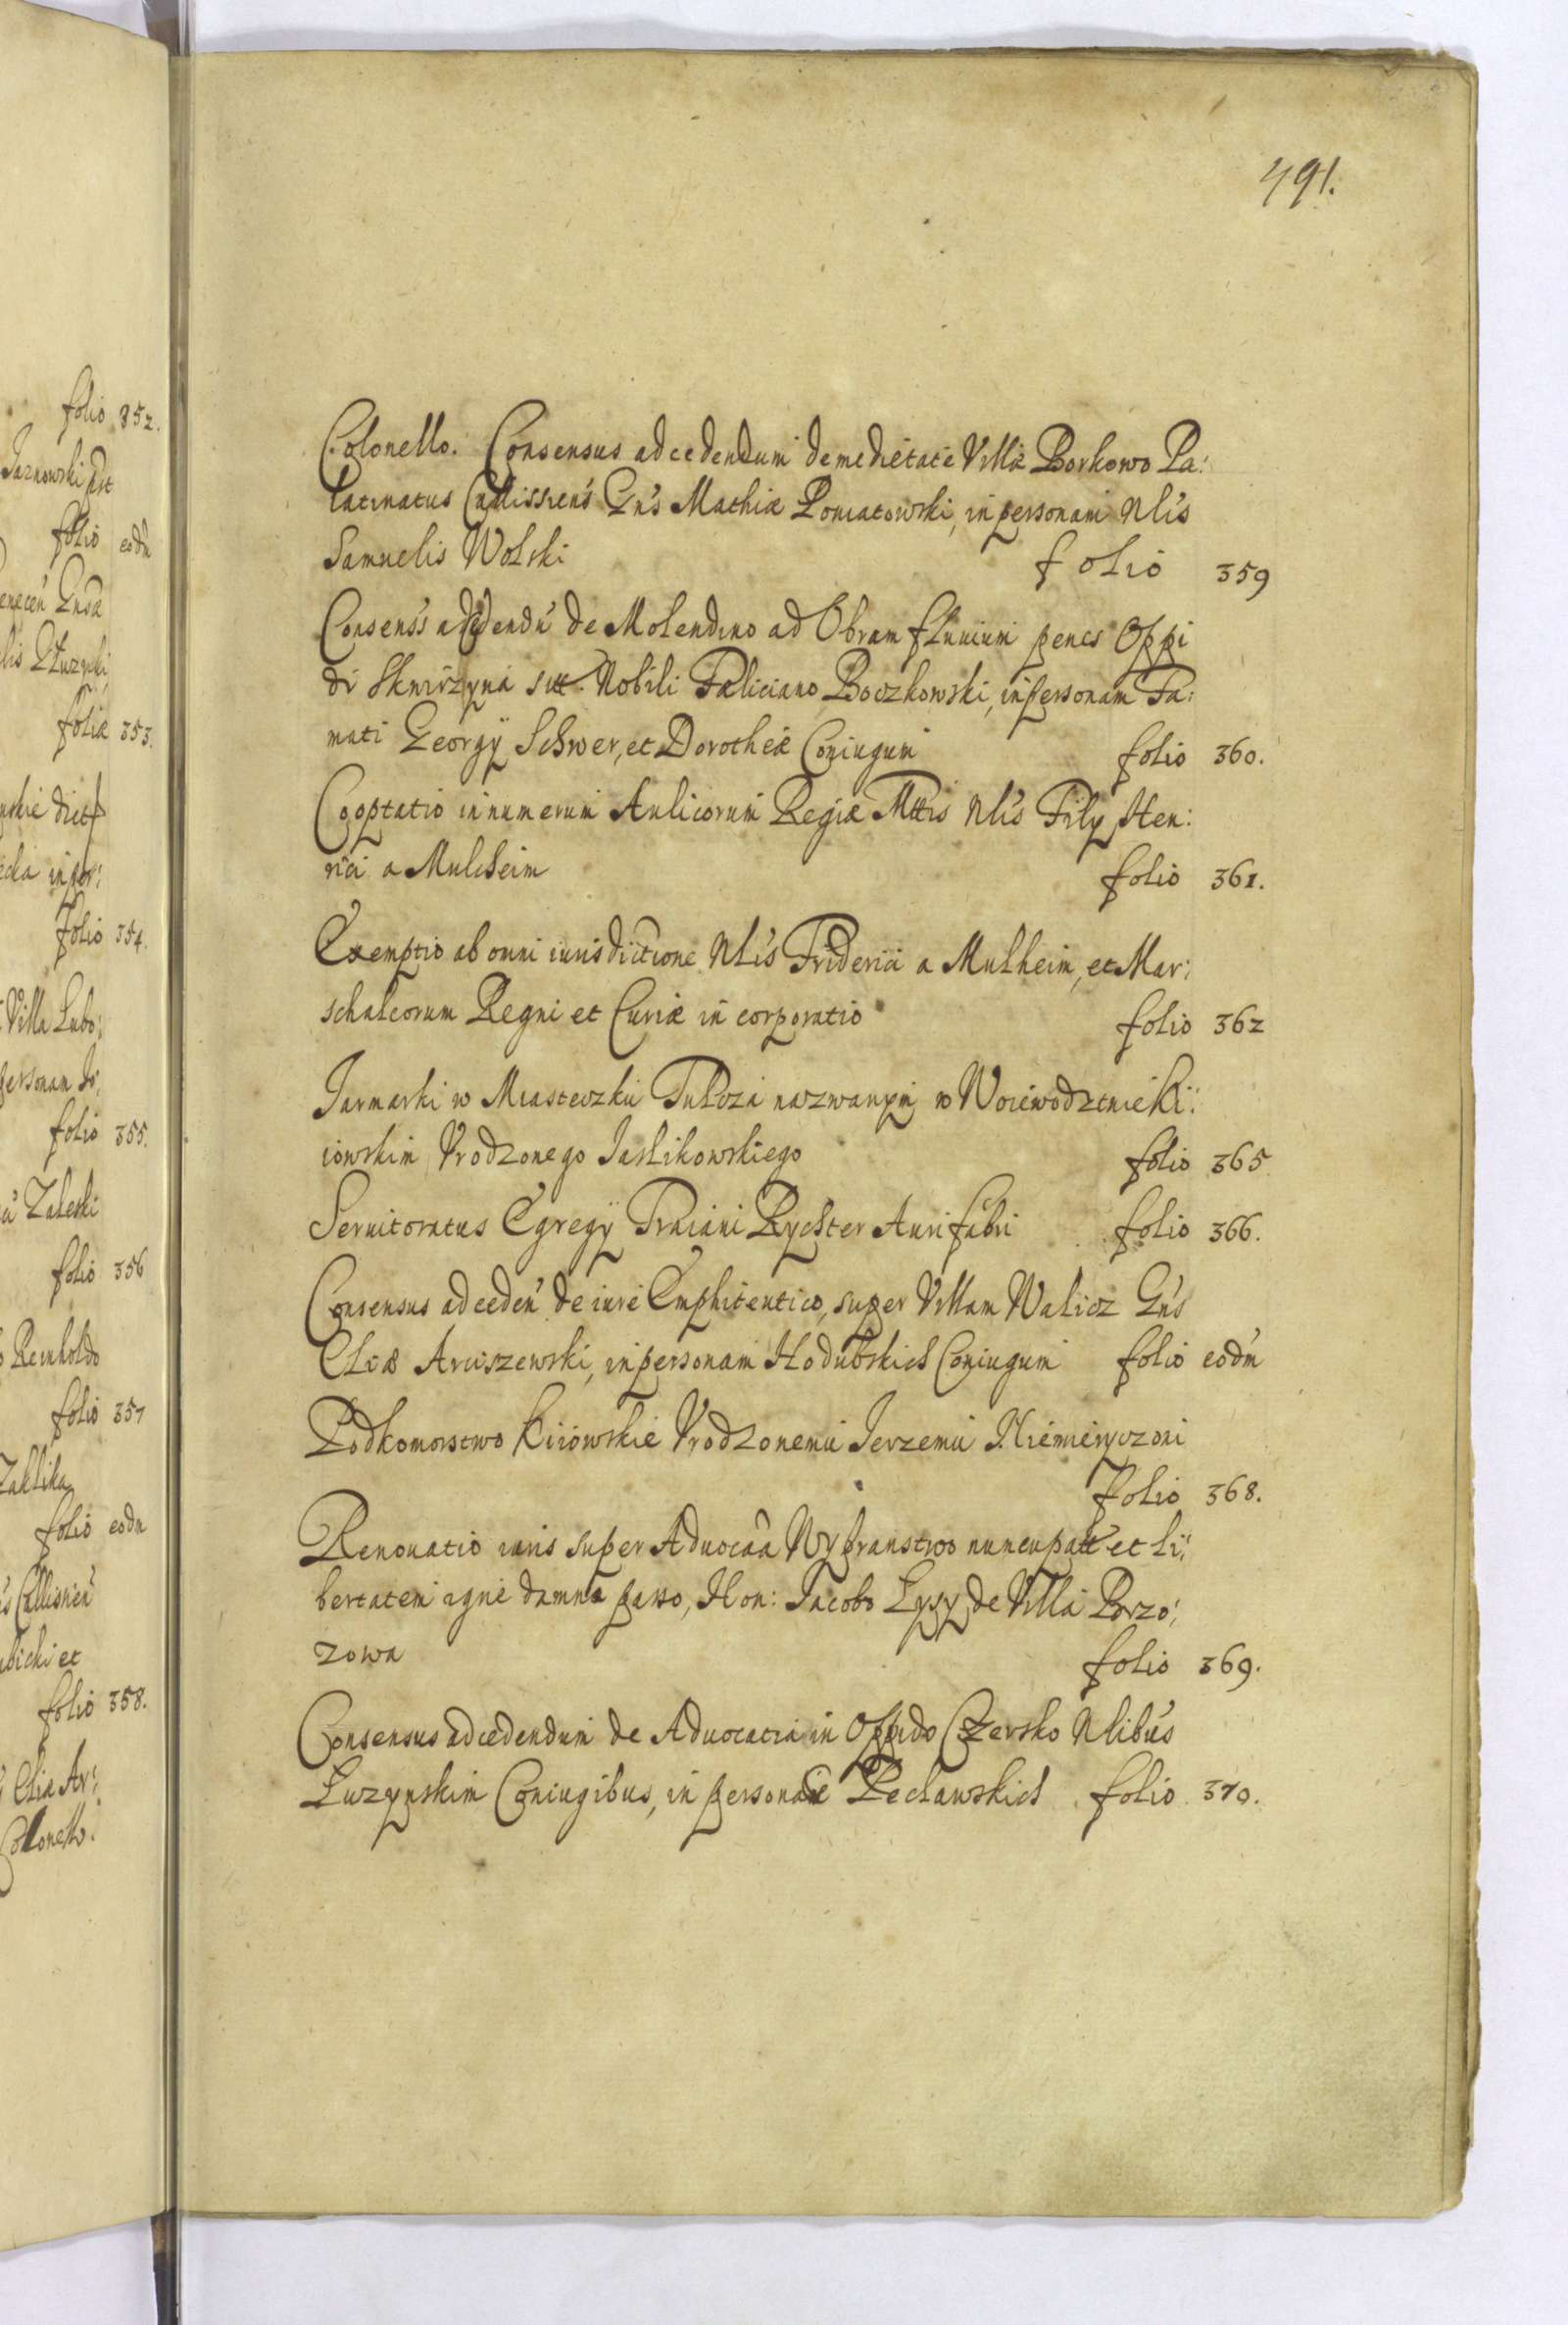 folio 352.
Jarnowski
folio eodm
folio 353.
folio 354.
Villa Lubo:
personam
folio 355.
Zaleski
folio 356
Reinholdo
folio 357
Zaklika
folio eodm
Callisien
bicki et
folio 358.
Elia Ar:
Collonello.
491.
Colonello. Consensus ad cedendum de medietate Villæ Borkowo Pa:
latinatus Callissiens Gns Mathiæ Poniatowski, in personam Nlis
Samuelis Wolski folio 359
Consenss ad cedendu de Molendino ad Obram fluuium penes Oppi
di Skwirzyna sitt. Nobili Fæliciano Boczkowski, in personam Fa:
mati Georgÿ Schwer, et Dorotheæ Coniugum folio 360.
Cooptatio in numerum Aulicorum Regiæ Mttis Nlis Filÿ Hen:
rici a Mulcheim folio 361.
Exemptio ab omni iurisdictione Nlis Friderici a Mulheim, et Mar:
schalcorum Regni et Curiæ in corporatio folio 362
Jarmarki w Miasteczku Tulcza nazwanym w Woiewodztwie Ki:
iowskim Vrodzonego Jaslikowskiego folio 365
Seruitoratus Egregÿ Traiani Rychter Aurifabri folio 366.
Consensus ad ceden de iure Emphiteutico, super Villam Walicz Gns
Eliæ Arciszewski, in personam Hodubskich Coniugum folio eodm
Podkomorstwo Kiiowskie Vrodzonemu Jerzemu Niemieryczowi
folio 368.
Renouatio iuris super Aduocaa Wybranstwo nuncupatt et li:
bertatem igne damna passo, Hon: Jacobo Lysy de Villa Porzo:
zowa folio 369.
Consensus ad cedendum de Aduocatia in Oppido Czersko Nlibus
Luzynskim Coniugibus, in personam Peclawskich folio 370.